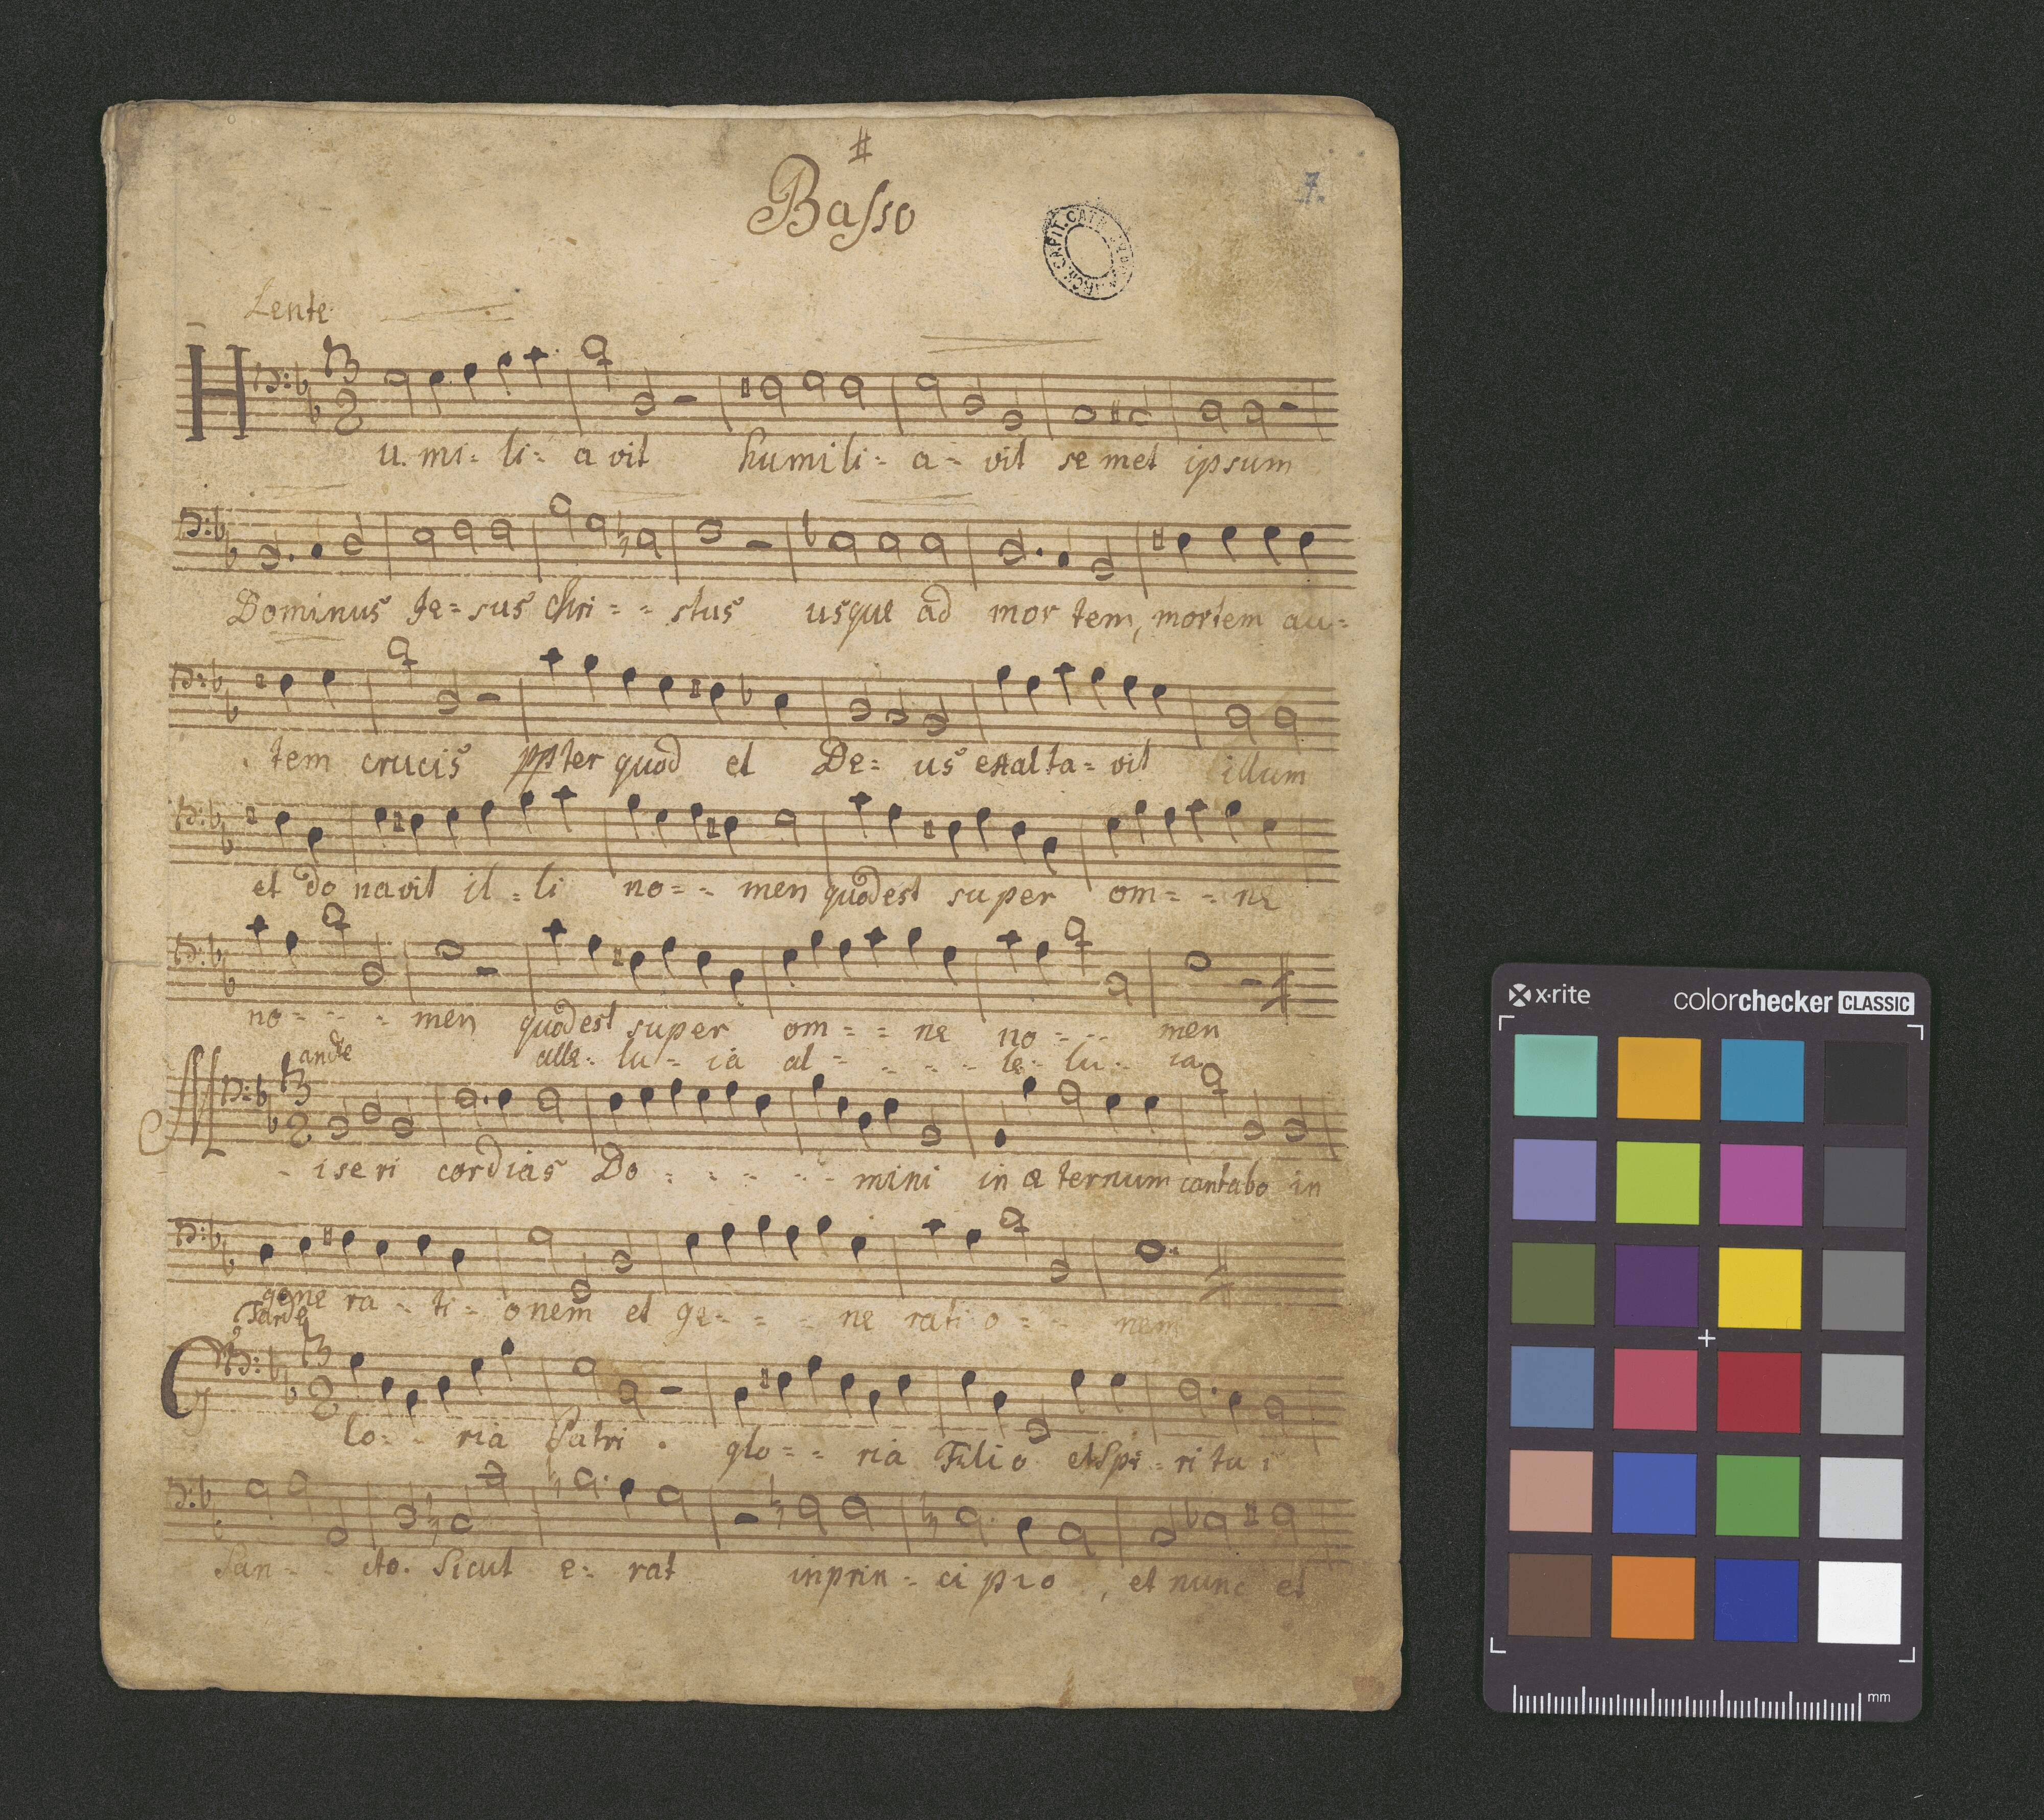 #
Basso
7.
ARCH. CAPIT. CATH.
Lente
Humi- li- a vit humili- a- vit se met ipsum
Dominus Je- sus Chri- - stus usque ad mor tem, mortem au-
tem crucis ppter quod et De- us exalta- vit illum
et do navit il- li no- - men quod est super om- - ne
no- - - - men quod est super om- - ne no- - - men
alle- lu- ia al- - - - - le- lu- ia
ande
Miseri cordias Do - - - - - mini in æ ternum cantabo in
gene ra- ti- onem et ge- - - ne rati o- - - nem
Tarde
Glo- - ria Patri. glo- - ria Filio et Spi- ritu i
San- - cto. Sicut e- rat in prin- ci pio, et nunc et
x·rite
colorchecker CLASSIC
mm